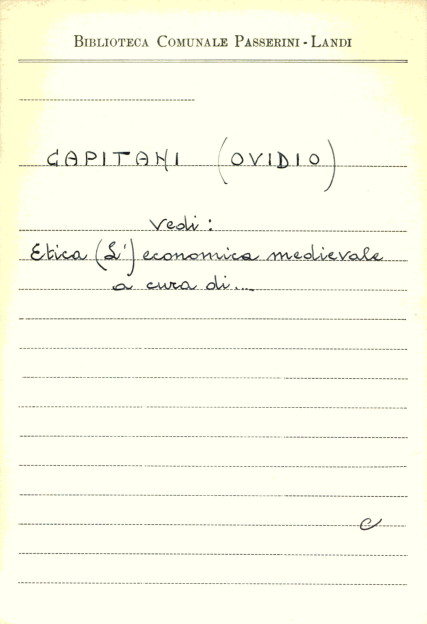 BIBLIOTECA COMUNALE PASSERINI - LANDI
CAPITANI (OVIDIO)
vedi:
Etica (L') economica medievale
a cura di....
C